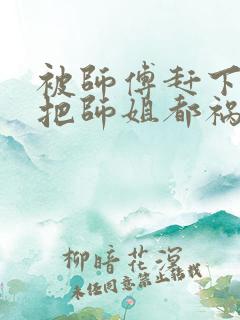 被師傅赶下
把師姐都祸
柳暗花溟
未经同意禁止转载